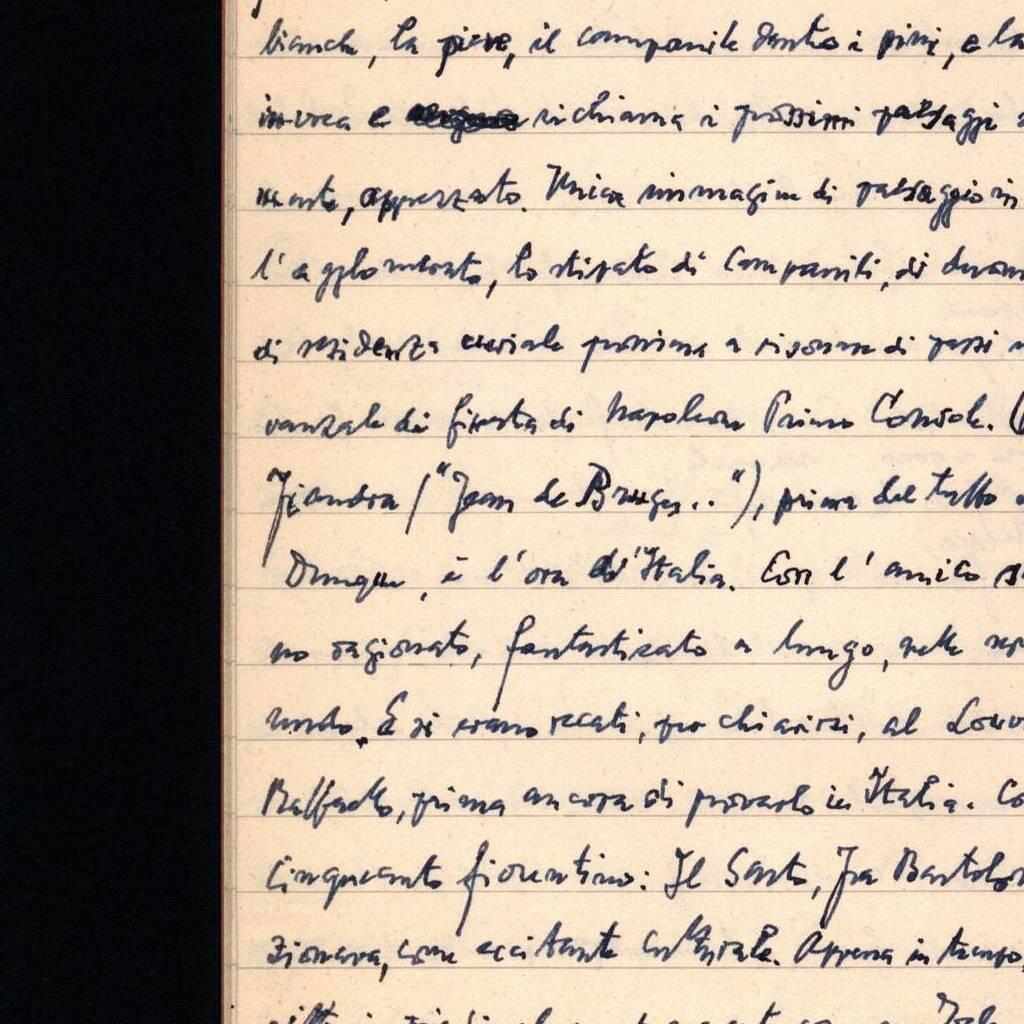 bianche, la pieve, il campanile dentro i pini, e la
invoca e richiama i prossimi paesaggi
mente, apprezzato. Unica immagine di paesaggio in
l'agglomerato, lo stipato di Campanili, di
di residenza prossima a risonare di passi
vanzale di finestra di Napoleon Primo Console.
Fiandra ("Jean de Bruges.."), prima del tutto
Dunque, è l'ora d'Italia. Con l'amico
no ragionato, fantasticato a lungo, nelle
mondo. E si erano recati, per chiarirsi, al Louv
Raffaello, prima ancora di provarlo in Italia. Co
Cinquecento fiorentino: Il Sarto, Fra Bartolom
zionava, come eccitante culturale. Appena in tempo,